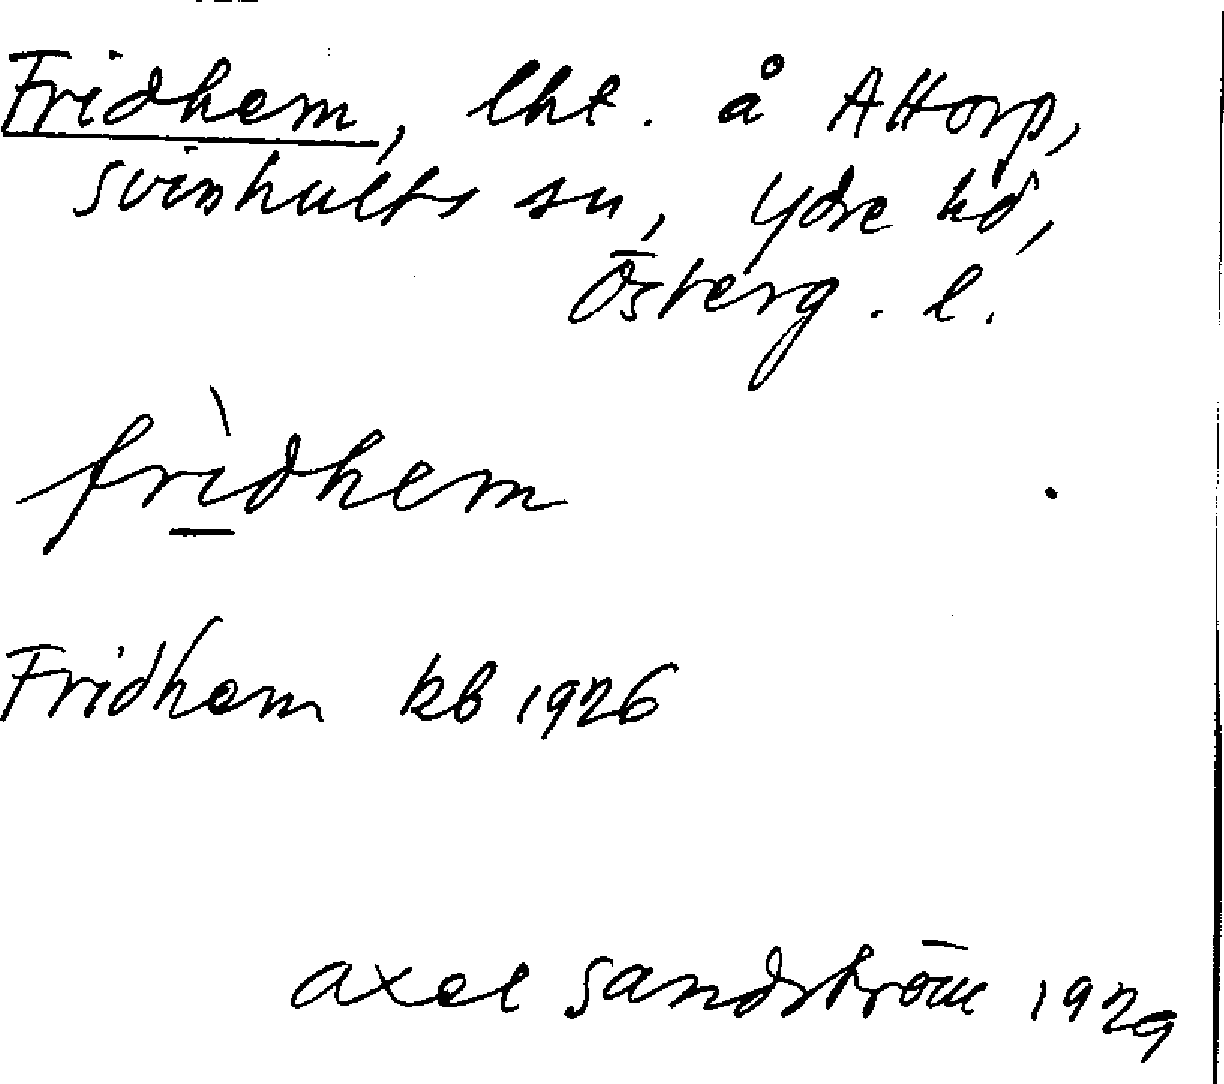 Fridhem, lht. å Attorp,
Svinhults sn, Ydre hd,
Österg. l.
frì̲dhem
Fridhem kb 1926
Axel Sandström 1929